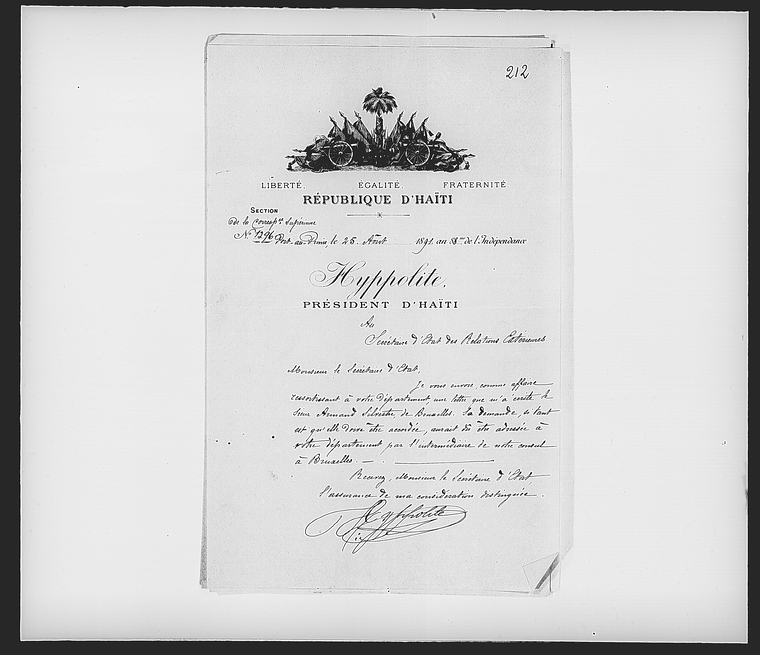 212
LIBERTÉ. ÉGALITÉ. FRATERNITÉ
RÉPUBLIQUE D'HAÏTI
SECTION
de la Corresp.ce Supérieure
No. 1296 Port-au-Prince, le 25 Août 1891. an 88me de l'Indépendance
Hyppolite,
PRÉSIDENT D'HAÏTI
Au
Secrétaire d'Etat des Relations Extérieures
Monsieur le Secrétaire d'Etat,
Je vous envoie, comme affaire
ressortissant à votre département, une lettre que m'a écrite le
sieur Armand Silvestre, de Bruxelles. Sa demande, si tant
est qu'elle doive être accordée, aurait dû être adressée à
votre département par l'intermédiaire de notre consul
à Bruxelles. —
Recevez, Monsieur le Secrétaire d'Etat
l'assurance de ma considération distinguée.
Hyppolite